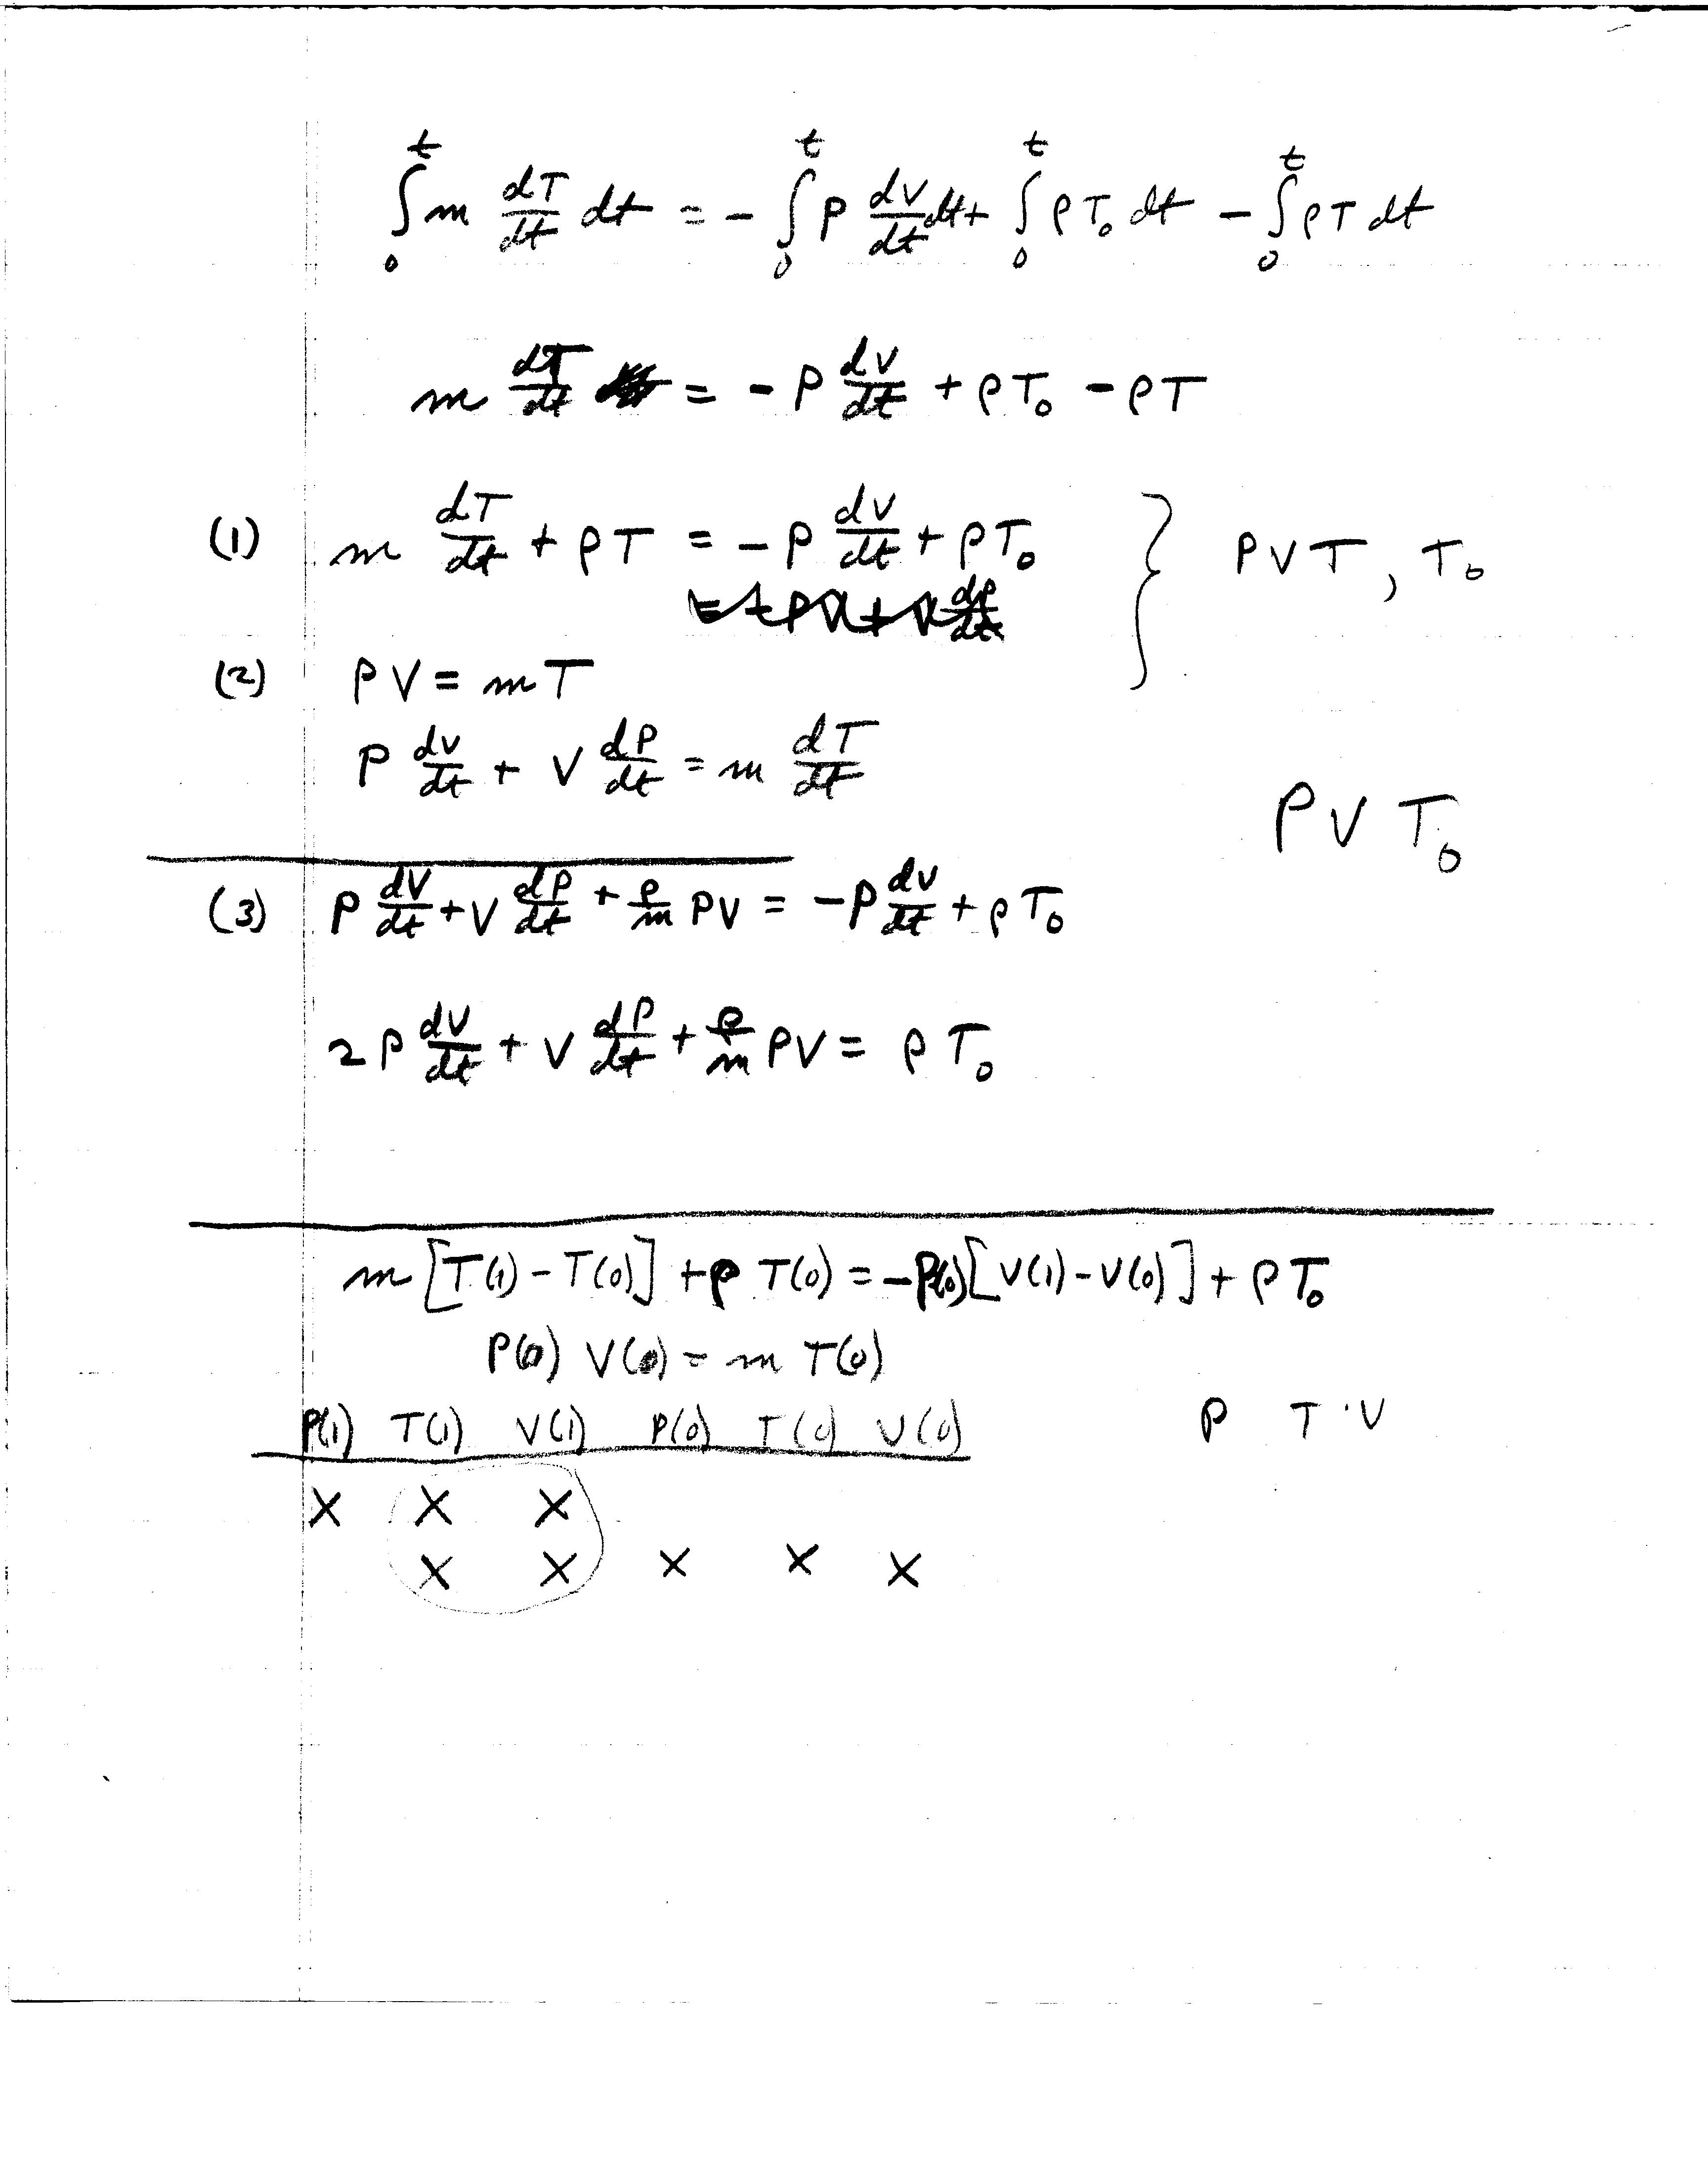 ∫₀ᵗ m dT/dt dt = - ∫₀ᵗ P dV/dt dt + ∫₀ᵗ ρ T₀ dt - ∫₀ᵗ ρ T dt
m dT/dt = - P dV/dt + ρ T₀ - ρ T
(1) m dT/dt + ρ T = - P dV/dt + ρ T₀ } P V T, T₀
(2) P V = m T
P dV/dt + V dP/dt = m dT/dt
P V T₀
(3) P dV/dt + V dP/dt + ρ/m P V = - P dV/dt + ρ T₀
2 P dV/dt + V dP/dt + ρ/m P V = ρ T₀
m [T(1) - T(0)] + ρ T(0) = - P(0) [V(1) - V(0)] + ρ T₀
P(0) V(0) = m T(0)
P(1) T(1) V(1) P(0) T(0) V(0) P T · V
X X X
X X X X X